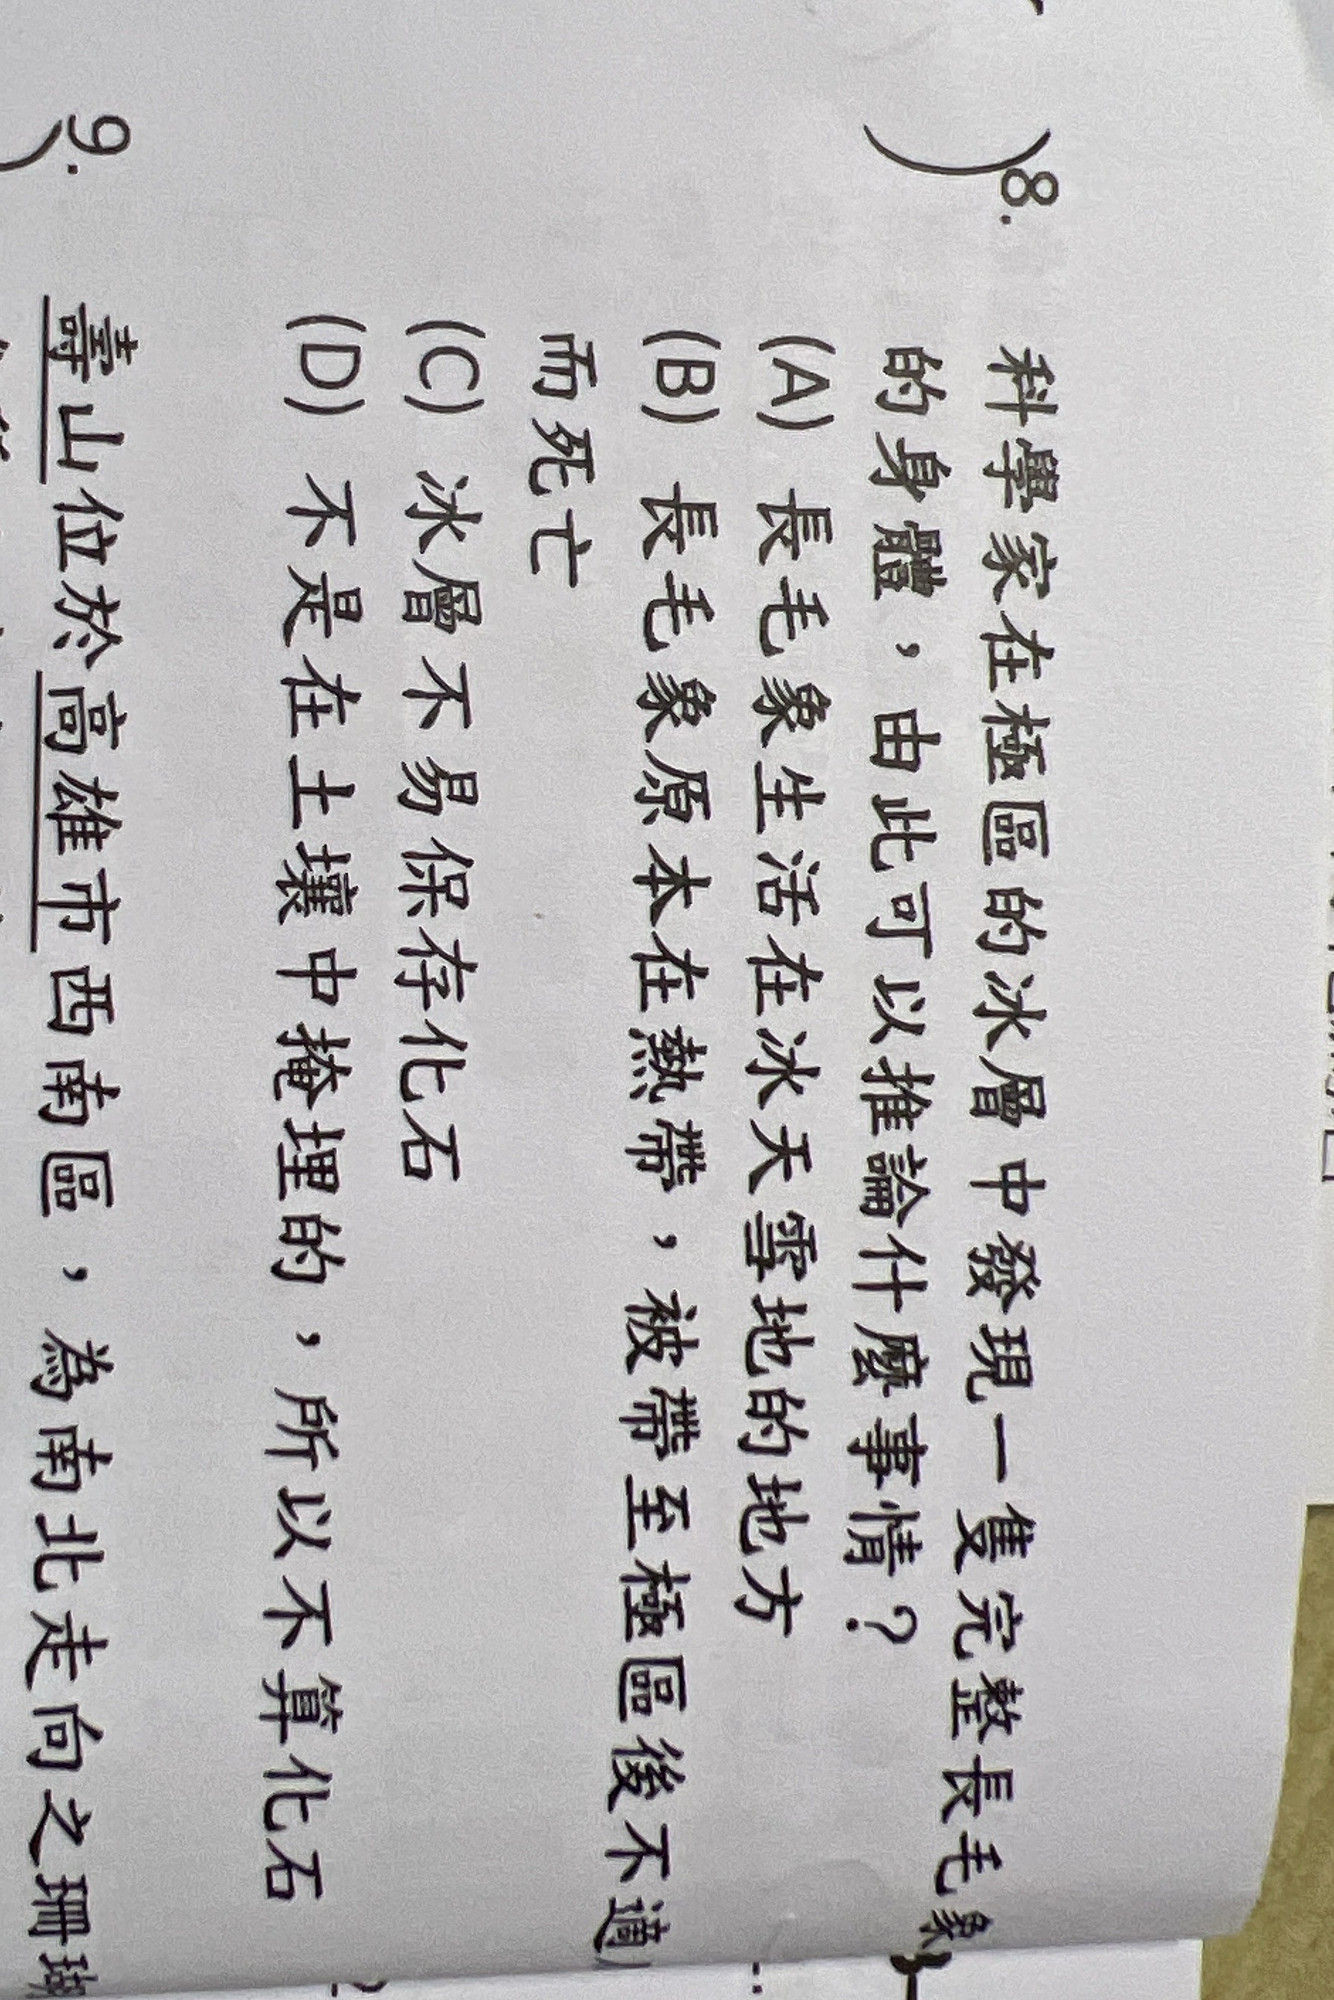 )8. 科學家在極區的冰層中發現一隻完整長毛象
的身體，由此可以推論什麼事情？
(A) 長毛象生活在冰天雪地的地方
(B) 長毛象原本在熱帶，被帶至極區後不適
而死亡
(C) 冰層不易保存化石
(D) 不是在土壤中掩埋的，所以不算化石
)9. 壽山位於高雄市西南區，為南北走向之珊瑚